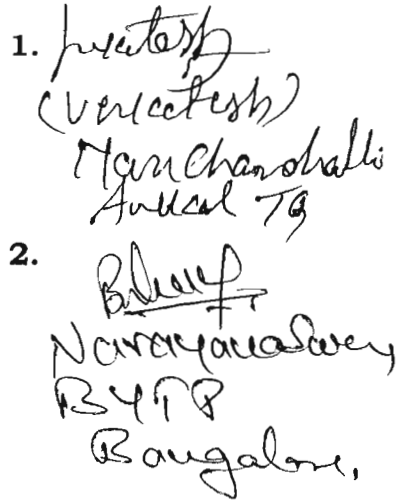 1.
(Venkatesh)
Manchanahalli
Anekal TQ
2.
Narayanaswamy
BYTP
Bangalore.